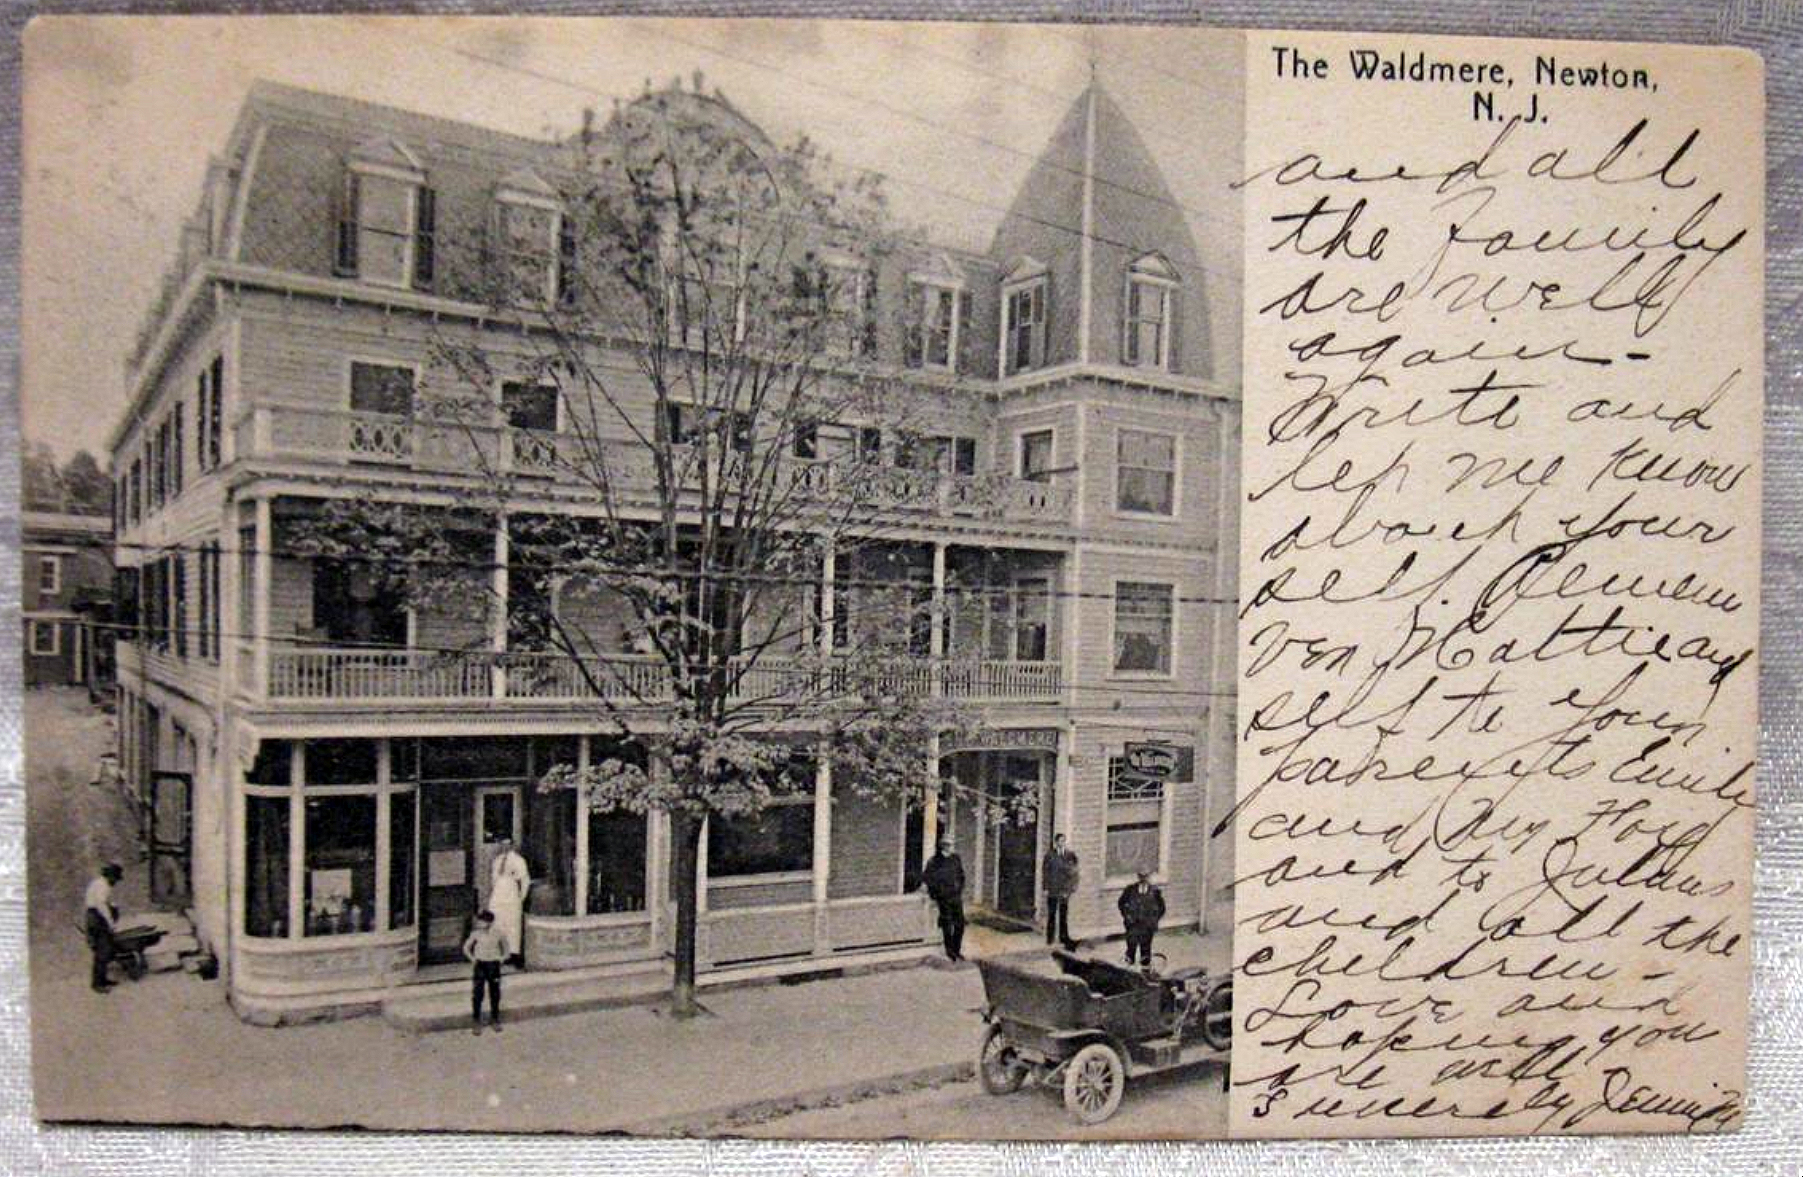 The Waldmere, Newton,
N. J.
and all
the family
are well
again -
Write and
let me know
about your
self. Remem
ber Mattie and
self to your
parents Emily
and
and to
and all the
children -
Love and
hoping you
are well
sincerely Jennie
WALDMERE